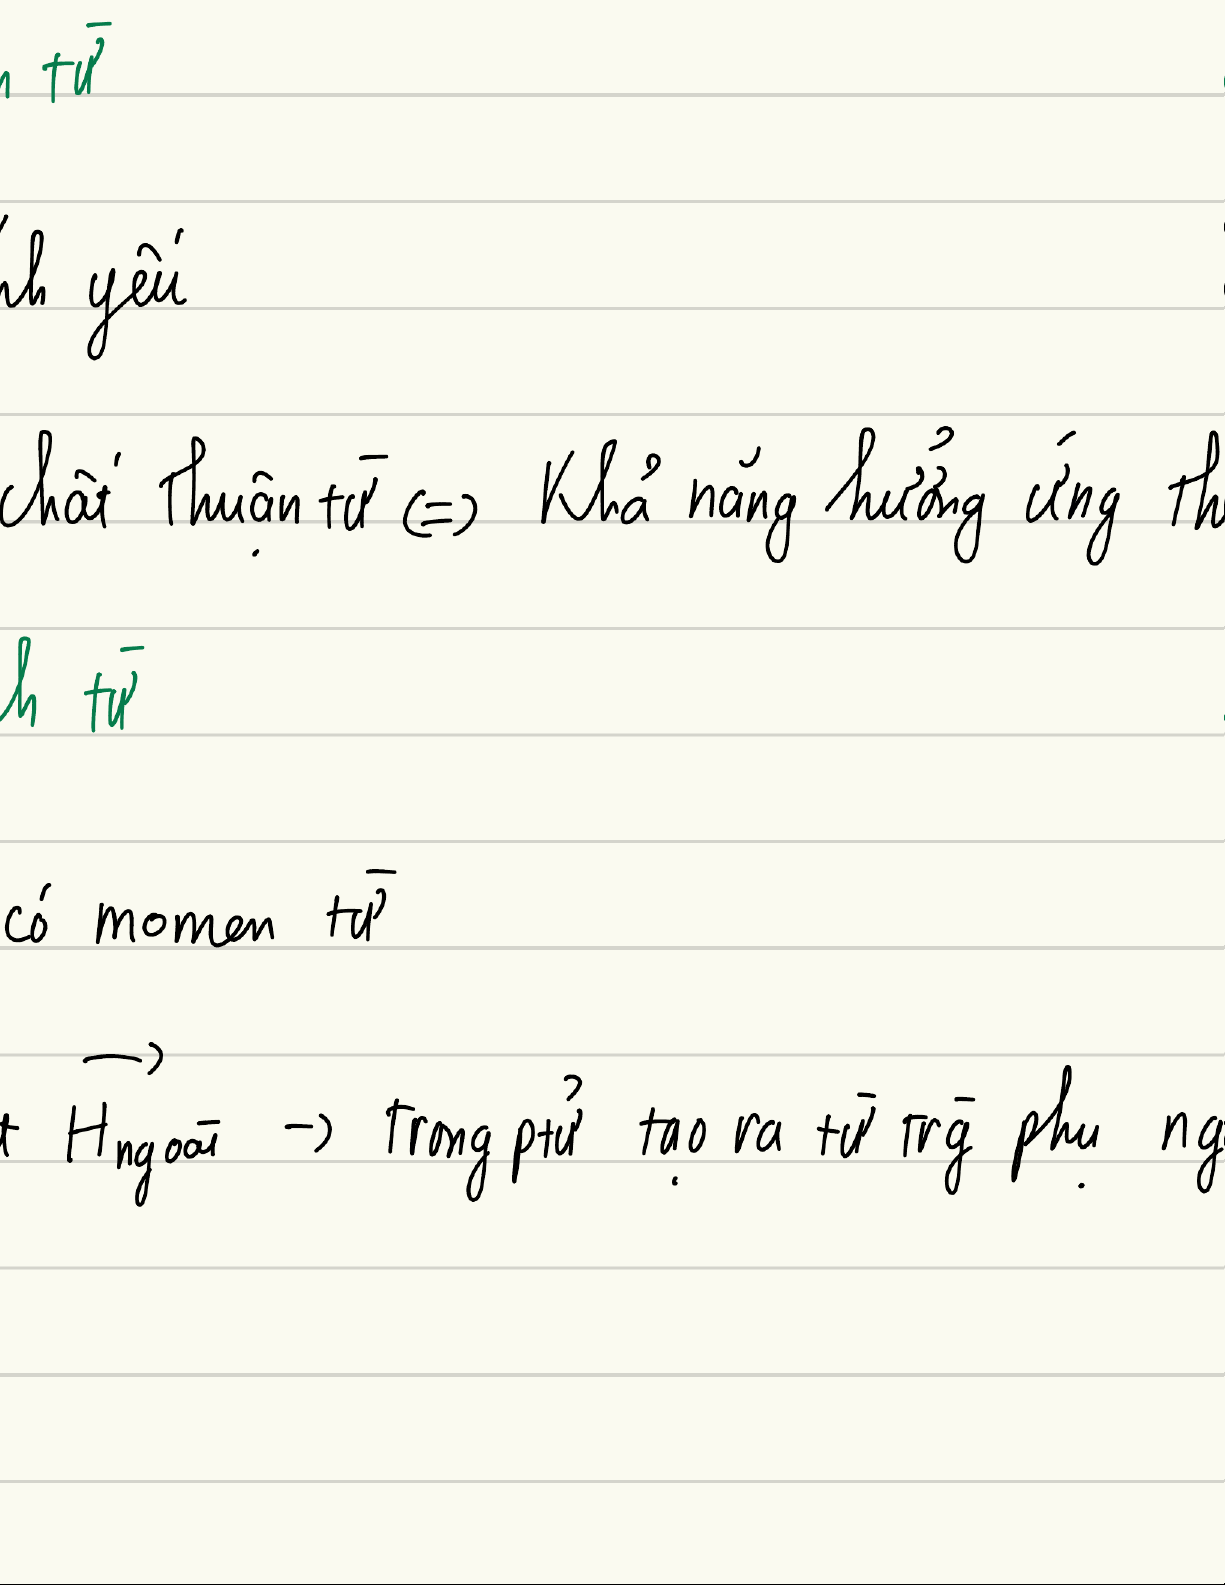 từ
yếu
chất thuận từ <=> Khả năng hưởng ứng
từ
có momen từ
H ngoài -> trong ptử tạo ra từ trg phụ